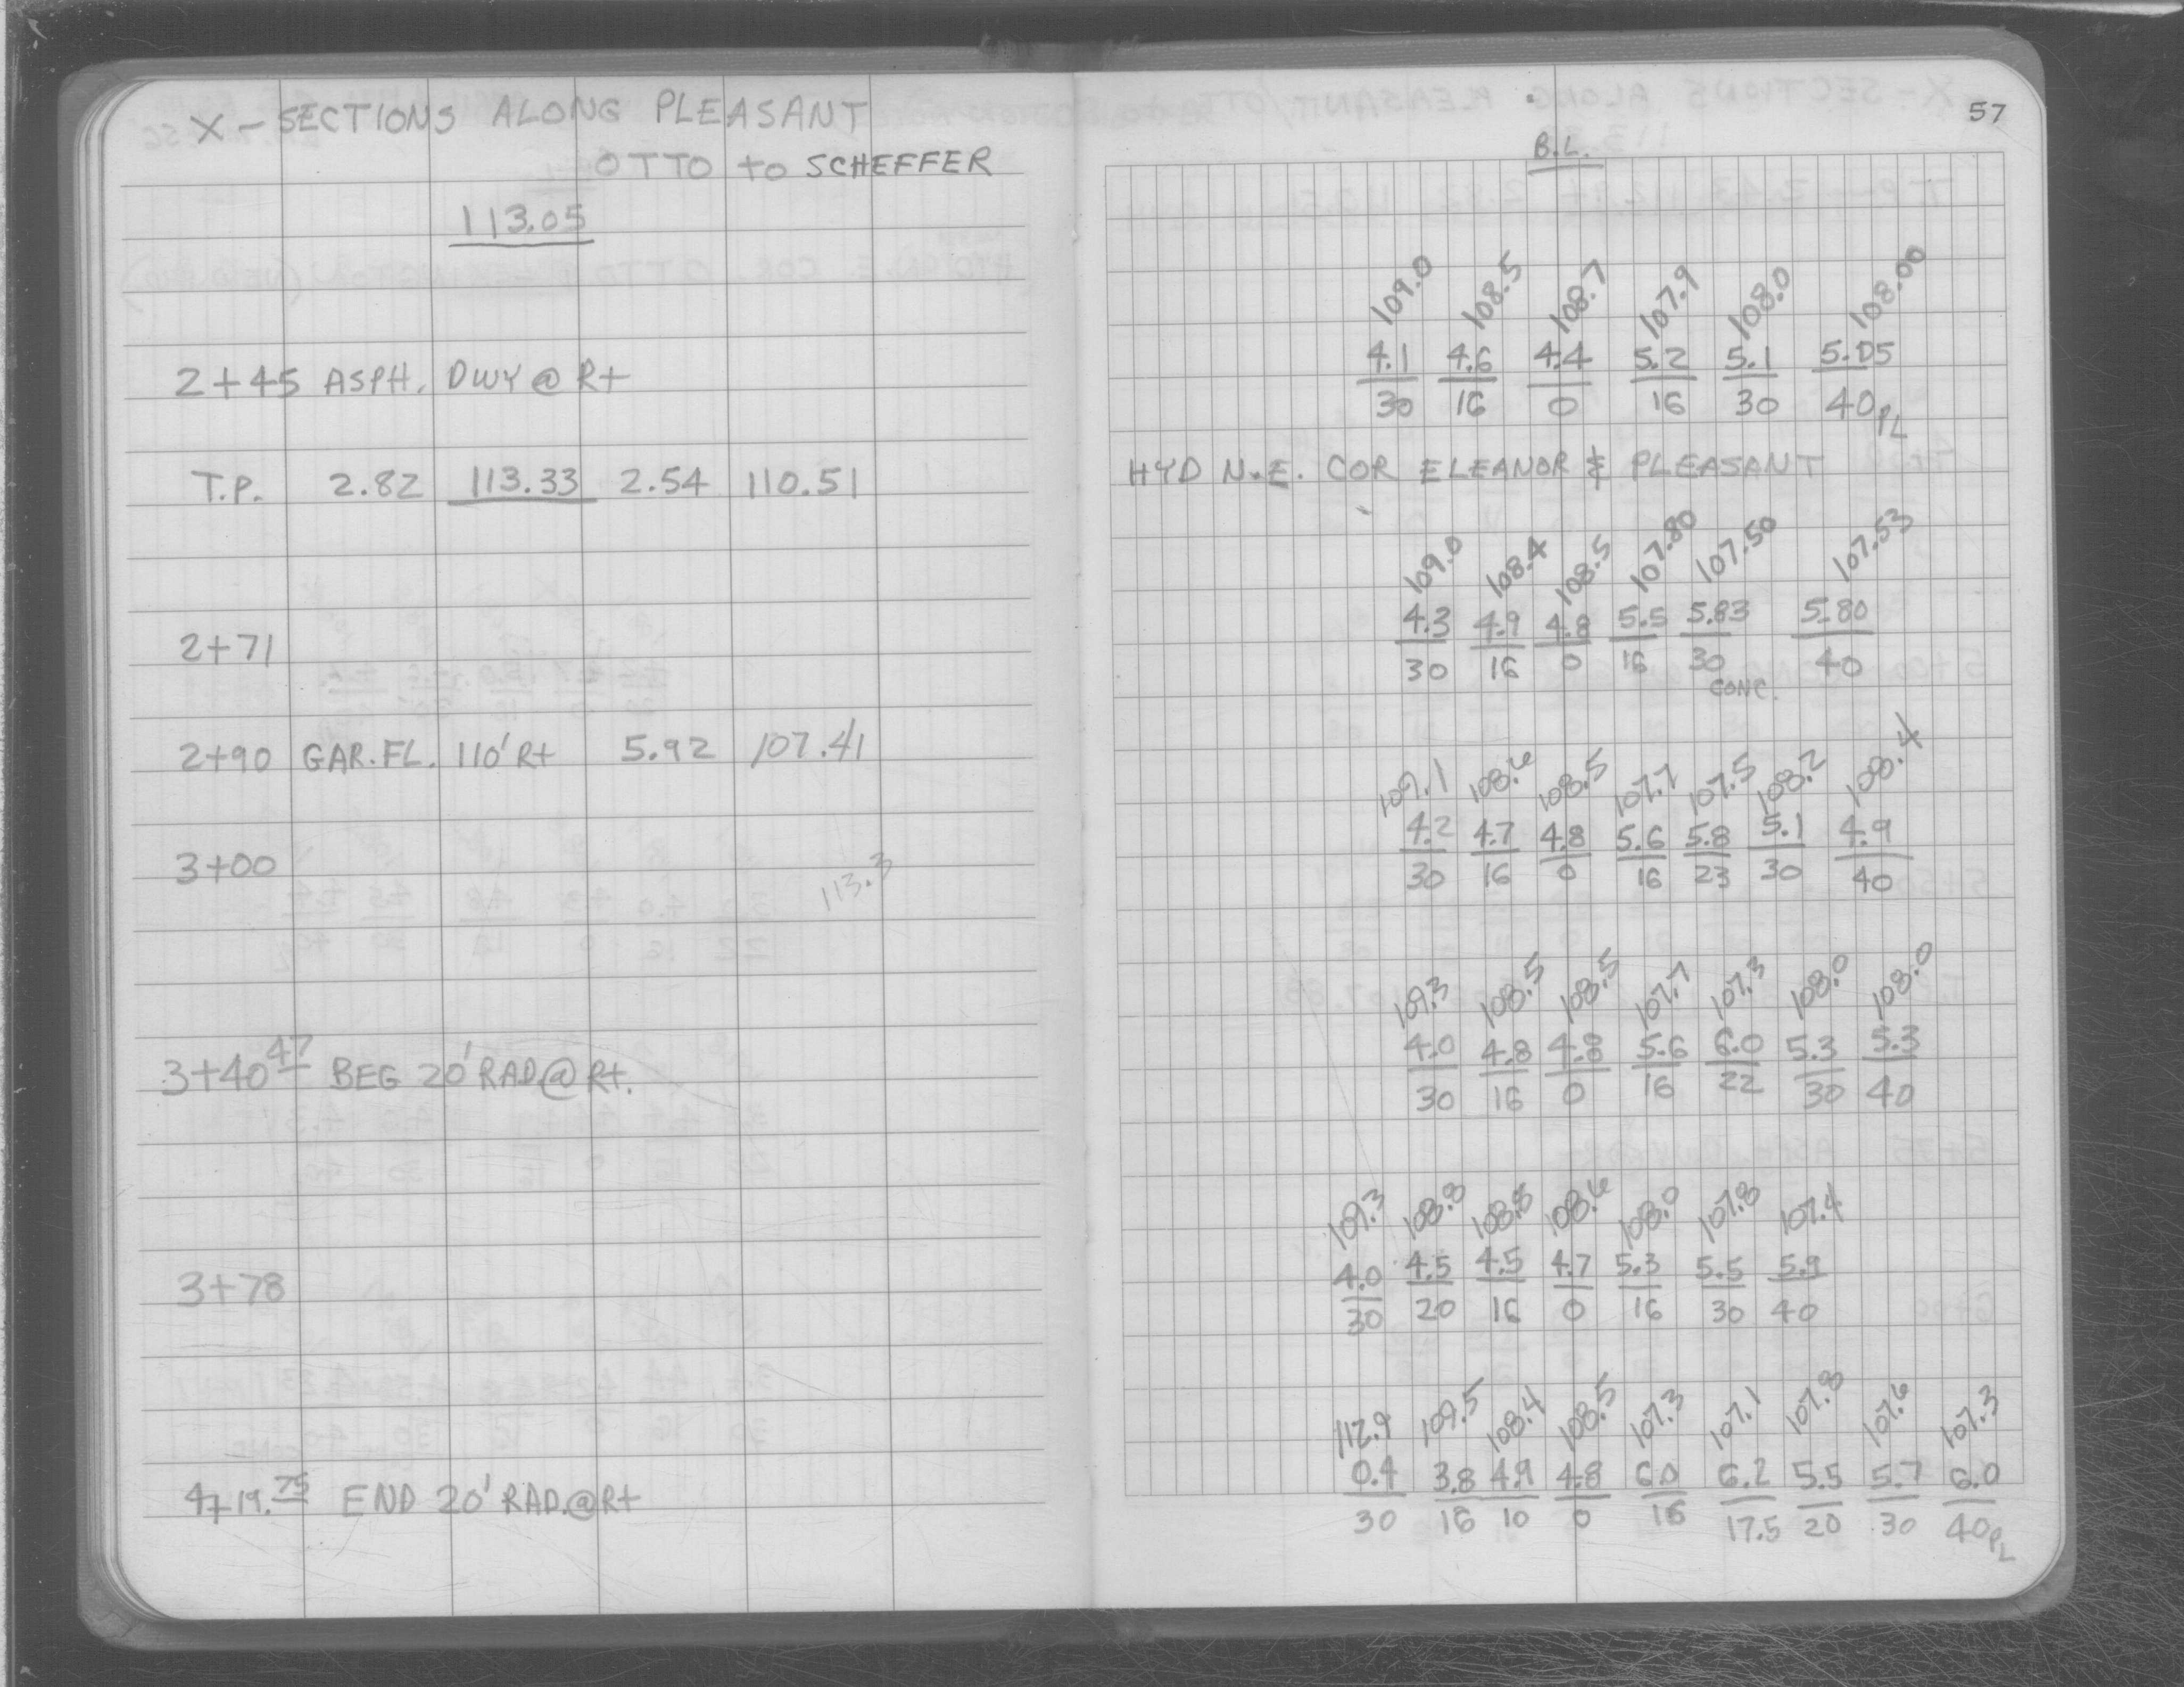 X-SECTIONS ALONG PLEASANT
OTTO to SCHEFFER
113.05
2+45 ASPH. DWY @ Rt
T.P. 2.82 113.33 2.54 110.51
2+71
2+90 GAR.FL. 110' Rt 5.92 107.41
3+00
113.3
3+40 47 BEG 20' RAD@Rt.
3+78
4+19.75 END 20' RAD.@Rt
57
B.L.
109.0 108.5 108.7 107.9 108.0 108.00
4.1 4.6 4.4 5.2 5.1 5.05
30 16 0 16 30 40 PL
HYD N.E. COR ELEANOR & PLEASANT
109.0 108.4 108.5 107.80 107.50 107.53
4.3 4.9 4.8 5.5 5.83 5.80
30 16 0 16 30 40
CONC.
109.1 108.6 108.5 107.7 107.5 108.2 108.4
4.2 4.7 4.8 5.6 5.8 5.1 4.9
30 16 0 16 23 30 40
109.3 108.5 108.5 107.7 107.3 108.0 108.0
4.0 4.8 4.8 5.6 6.0 5.3 5.3
30 16 0 16 22 30 40
109.3 108.8 108.8 108.6 108.0 107.8 107.4
4.0 4.5 4.5 4.7 5.3 5.5 5.9
30 20 16 0 16 30 40
112.9 109.5 108.4 108.5 107.3 107.1 107.8 107.6 107.3
0.4 3.8 4.9 4.8 6.0 6.2 5.5 5.7 6.0
30 16 10 0 16 17.5 20 30 40 PL